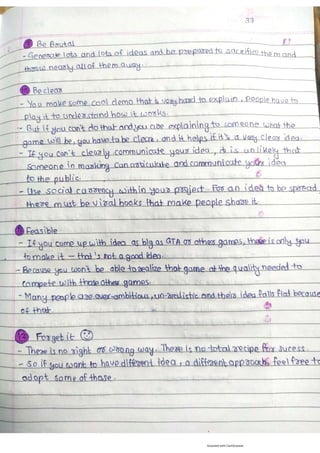 33
9 Be Brutal
- Generate lots and lots of ideas and be prepared to sacrifice them and
throw nearly all of them away.
10 Be clear
- You make some cool demo that is very hard to explain, people have to
play it to understand how it works.
- But if you can't do that and you are explaining to someone what the
game will be, you have to be clear, and it helps if it's a very clear idea.
- If you can't clearly communicate your idea, it is unlikely that
someone in marking can articulate and communicate your idea
to the public.
- Use social currency within your project. For an idea to be spread,
there must be viral hooks that make people share it.
11 Feasible
- If you come up with idea as big as GTA or other games, there is only you
to make it — that's not a good idea.
- Because you won't be able to realize that game at the quality needed to
compete with those other games.
- Many people are over-ambitious, un-realistic and their idea falls flat because
of that.
12 Forget it
- There is no right or wrong way. There is no total recipe for sucess.
- So if you want to have different idea, a different approach, feel free to
adopt some of those.
Scanned with CamScanner